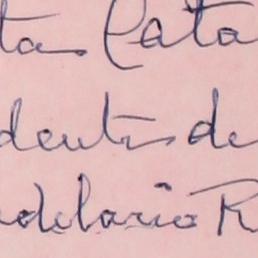 tas Cata
dentes de
ndelario R